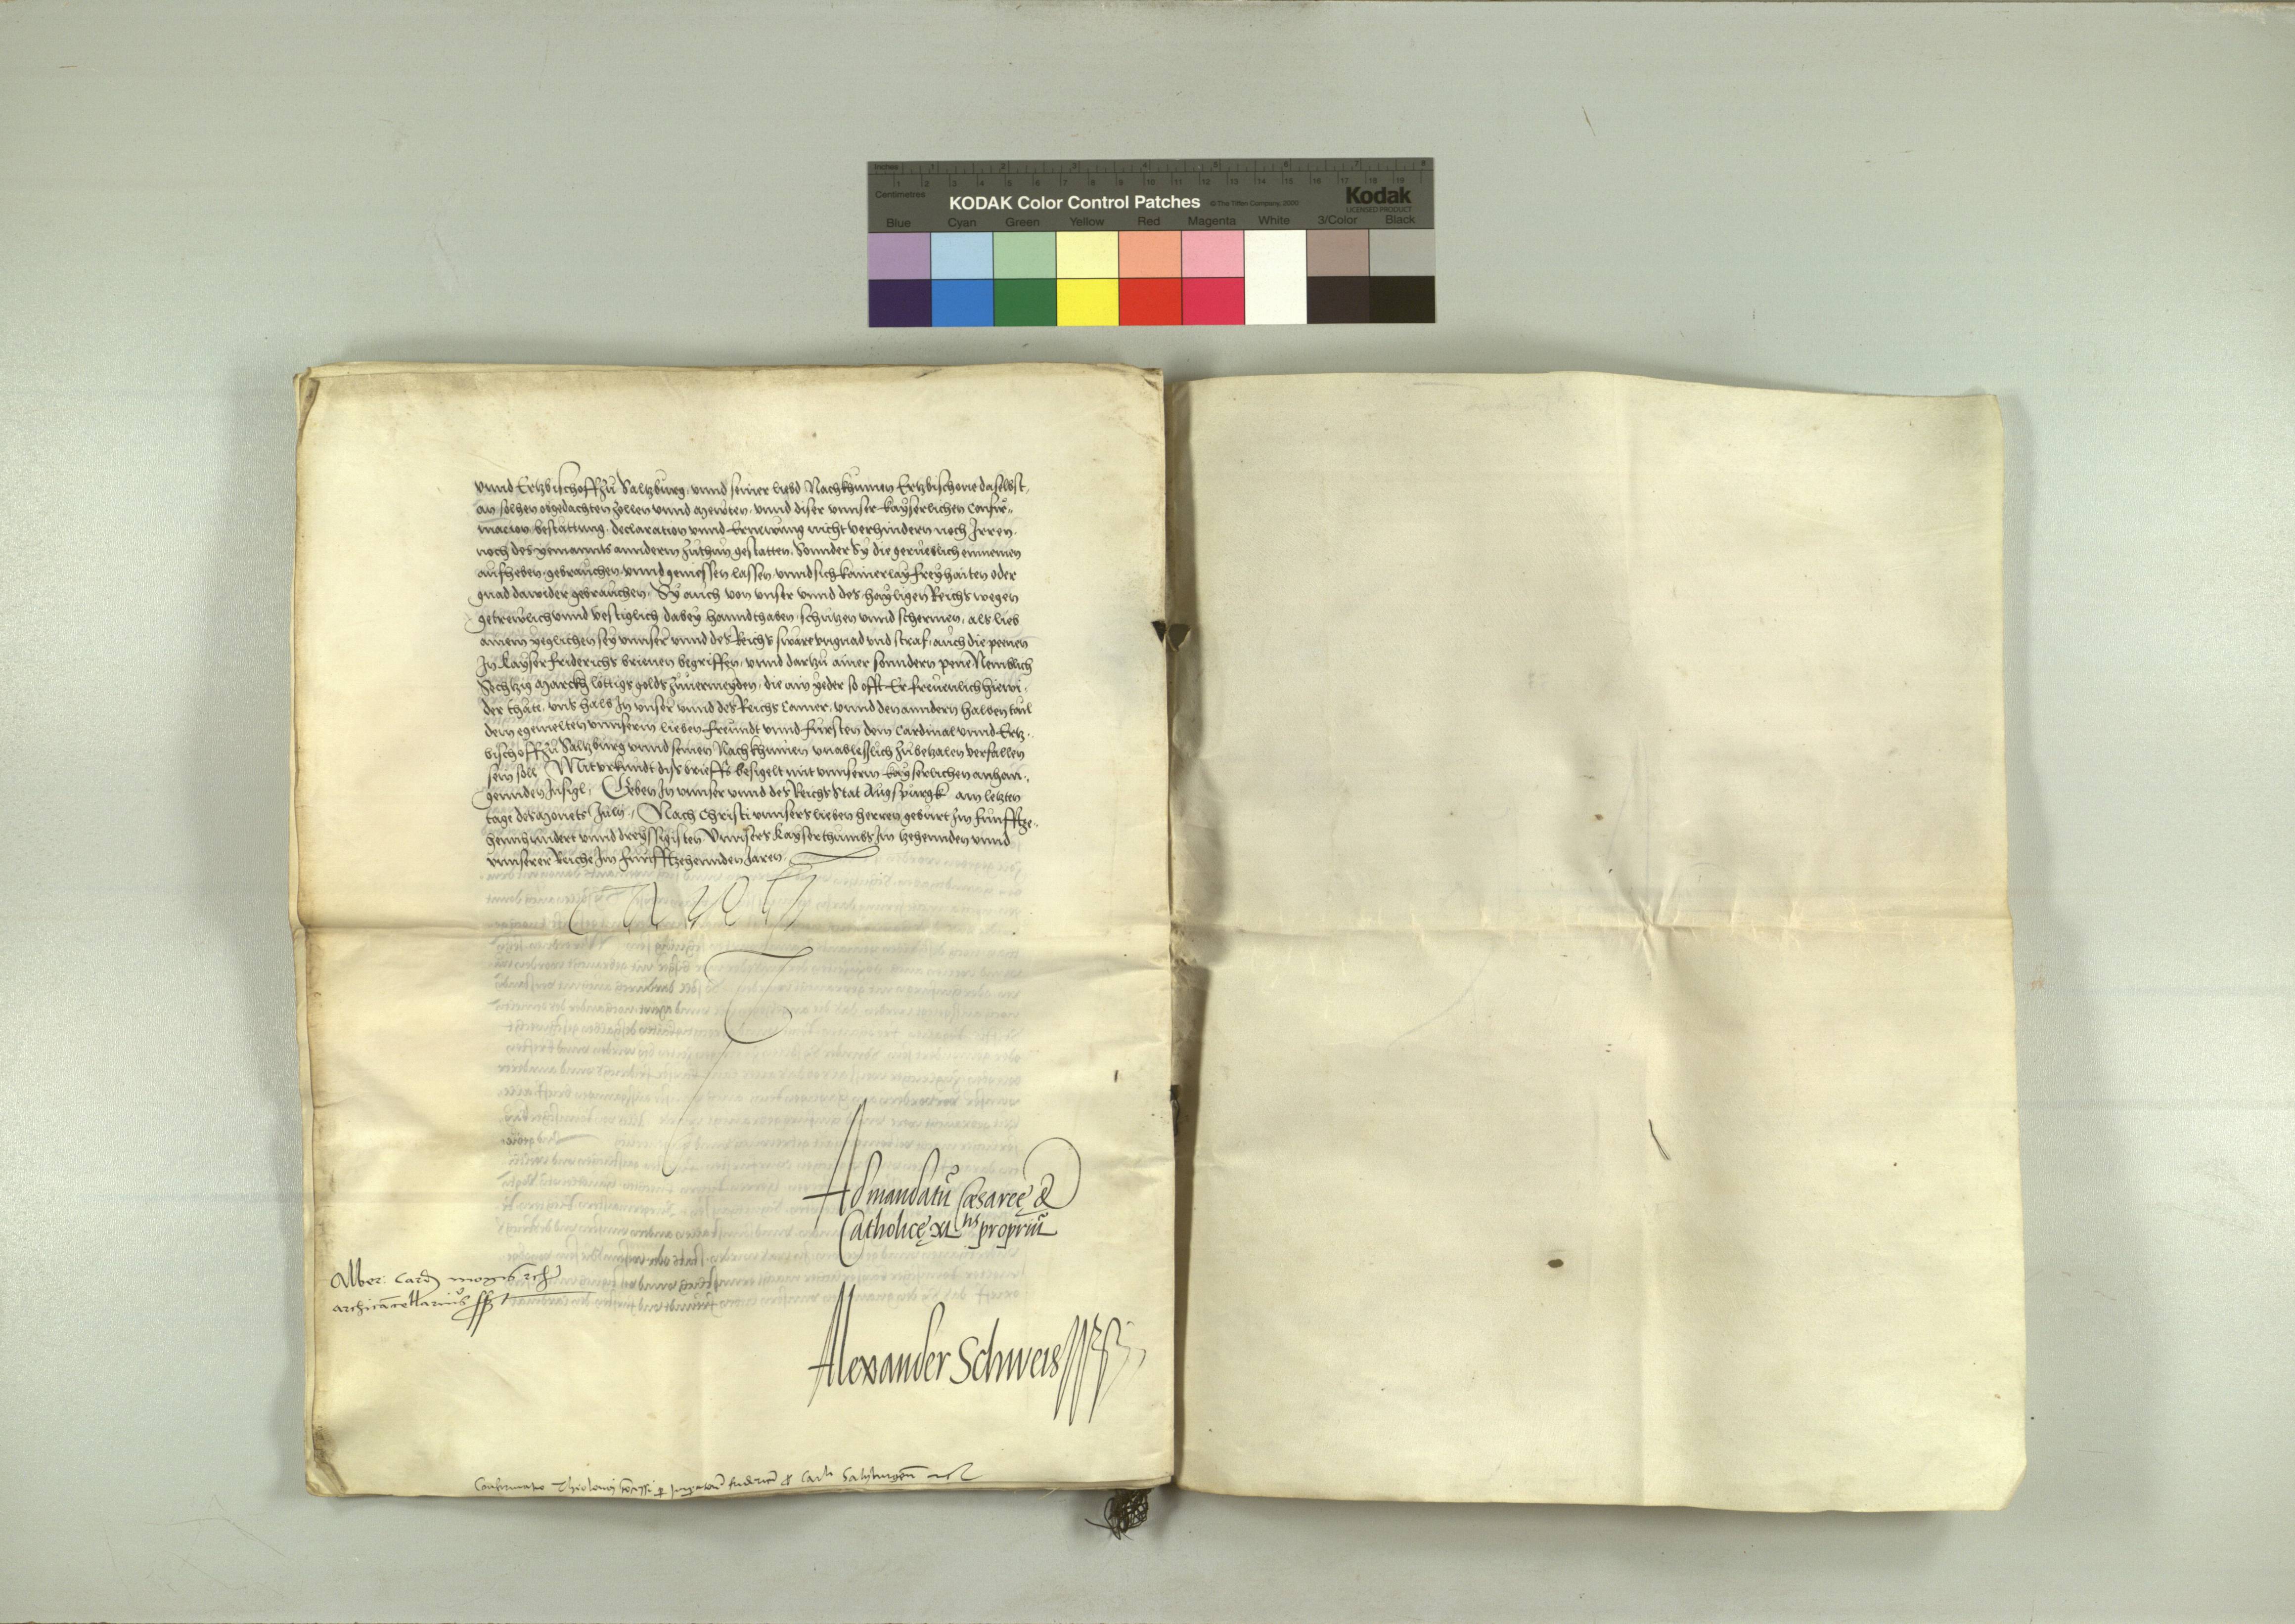 Inches 1 2 3 4 5 6 7 8
Centimetres 1 2 3 4 5 6 7 8 9 10 11 12 13 14 15 16 17 18 19
KODAK Color Control Patches © The Tiffen Company, 2000 Kodak
LICENSED PRODUCT
Blue Cyan Green Yellow Red Magenta White 3/Color Black
vnnd Ertzbischoff zu Saltzburg, vnnd seiner liebd Nachkhumen Ertzbischoue daselbst,
an solhen obgedachten zollen vnnd mewten, vnnd diser vnnser kayserlichen Confir-
macion bestattung, declaration vnnd Ernewung nicht verhindern noch Irren,
noch des yemannts anndern zuthun gestatten, Sonnder Sy die geruelich einnemen
aufheben, gebrauchen vnnd geniessen lassen vnnd sich kainerlay freyhaiten oder
gnad dawider gebrauchen, Sy auch von vnser vnnd des hayligen Reichs wegen
getrewlich vnnd vestiglich dabey hanndthaben, schutzen vnnd schermen, als lieb
ainem yeglichen sey vnnser vnnd des Reichs sware vngnad vnd straf, auch die peenen
In Kayser Friderichs brieuen begriffen, vnnd dartzu ainer sonndern pene Nemblich
Sechtzig Marckh lottigs golds zuuermeyden, die ain yeder so offt Er freuenlich hiewi-
der thäte, vns halb In vnser vnnd des Reichs Camer, vnnd den anndern halben tail
dem egemelten vnnserm lieben freundt vnnd Fursten dem Cardinal vnnd Ertz-
bischoff zu Saltzburg vnnd seinen Nachkhumen vnableslich zu betzalen verfallen
sein soll, Mit vrkundt diss brieffs besigelt mit vnnserm kayserlichen anhan-
genden Insigl, Geben In vnnser vnnd des Reichs Stat Augspurgk am letzten
tage des Monets July, Nach Christi vnnsers lieben herren geburt Im funfftze-
hennhundert vnnd dreyssigisten, Vnnsers Kayserthumbs Im Zehennden vnnd
vnnserer Reiche Im funfftzehennden Jaren,
Carolus
Ad mandatū Cæsareę &
Catholicę Mtis propriū
Alber: Card mogū
archicācellarius sst
Alexander Schweis
Confirmatio Thelonei per Imperatorē fridericū & Carl Salzburgen